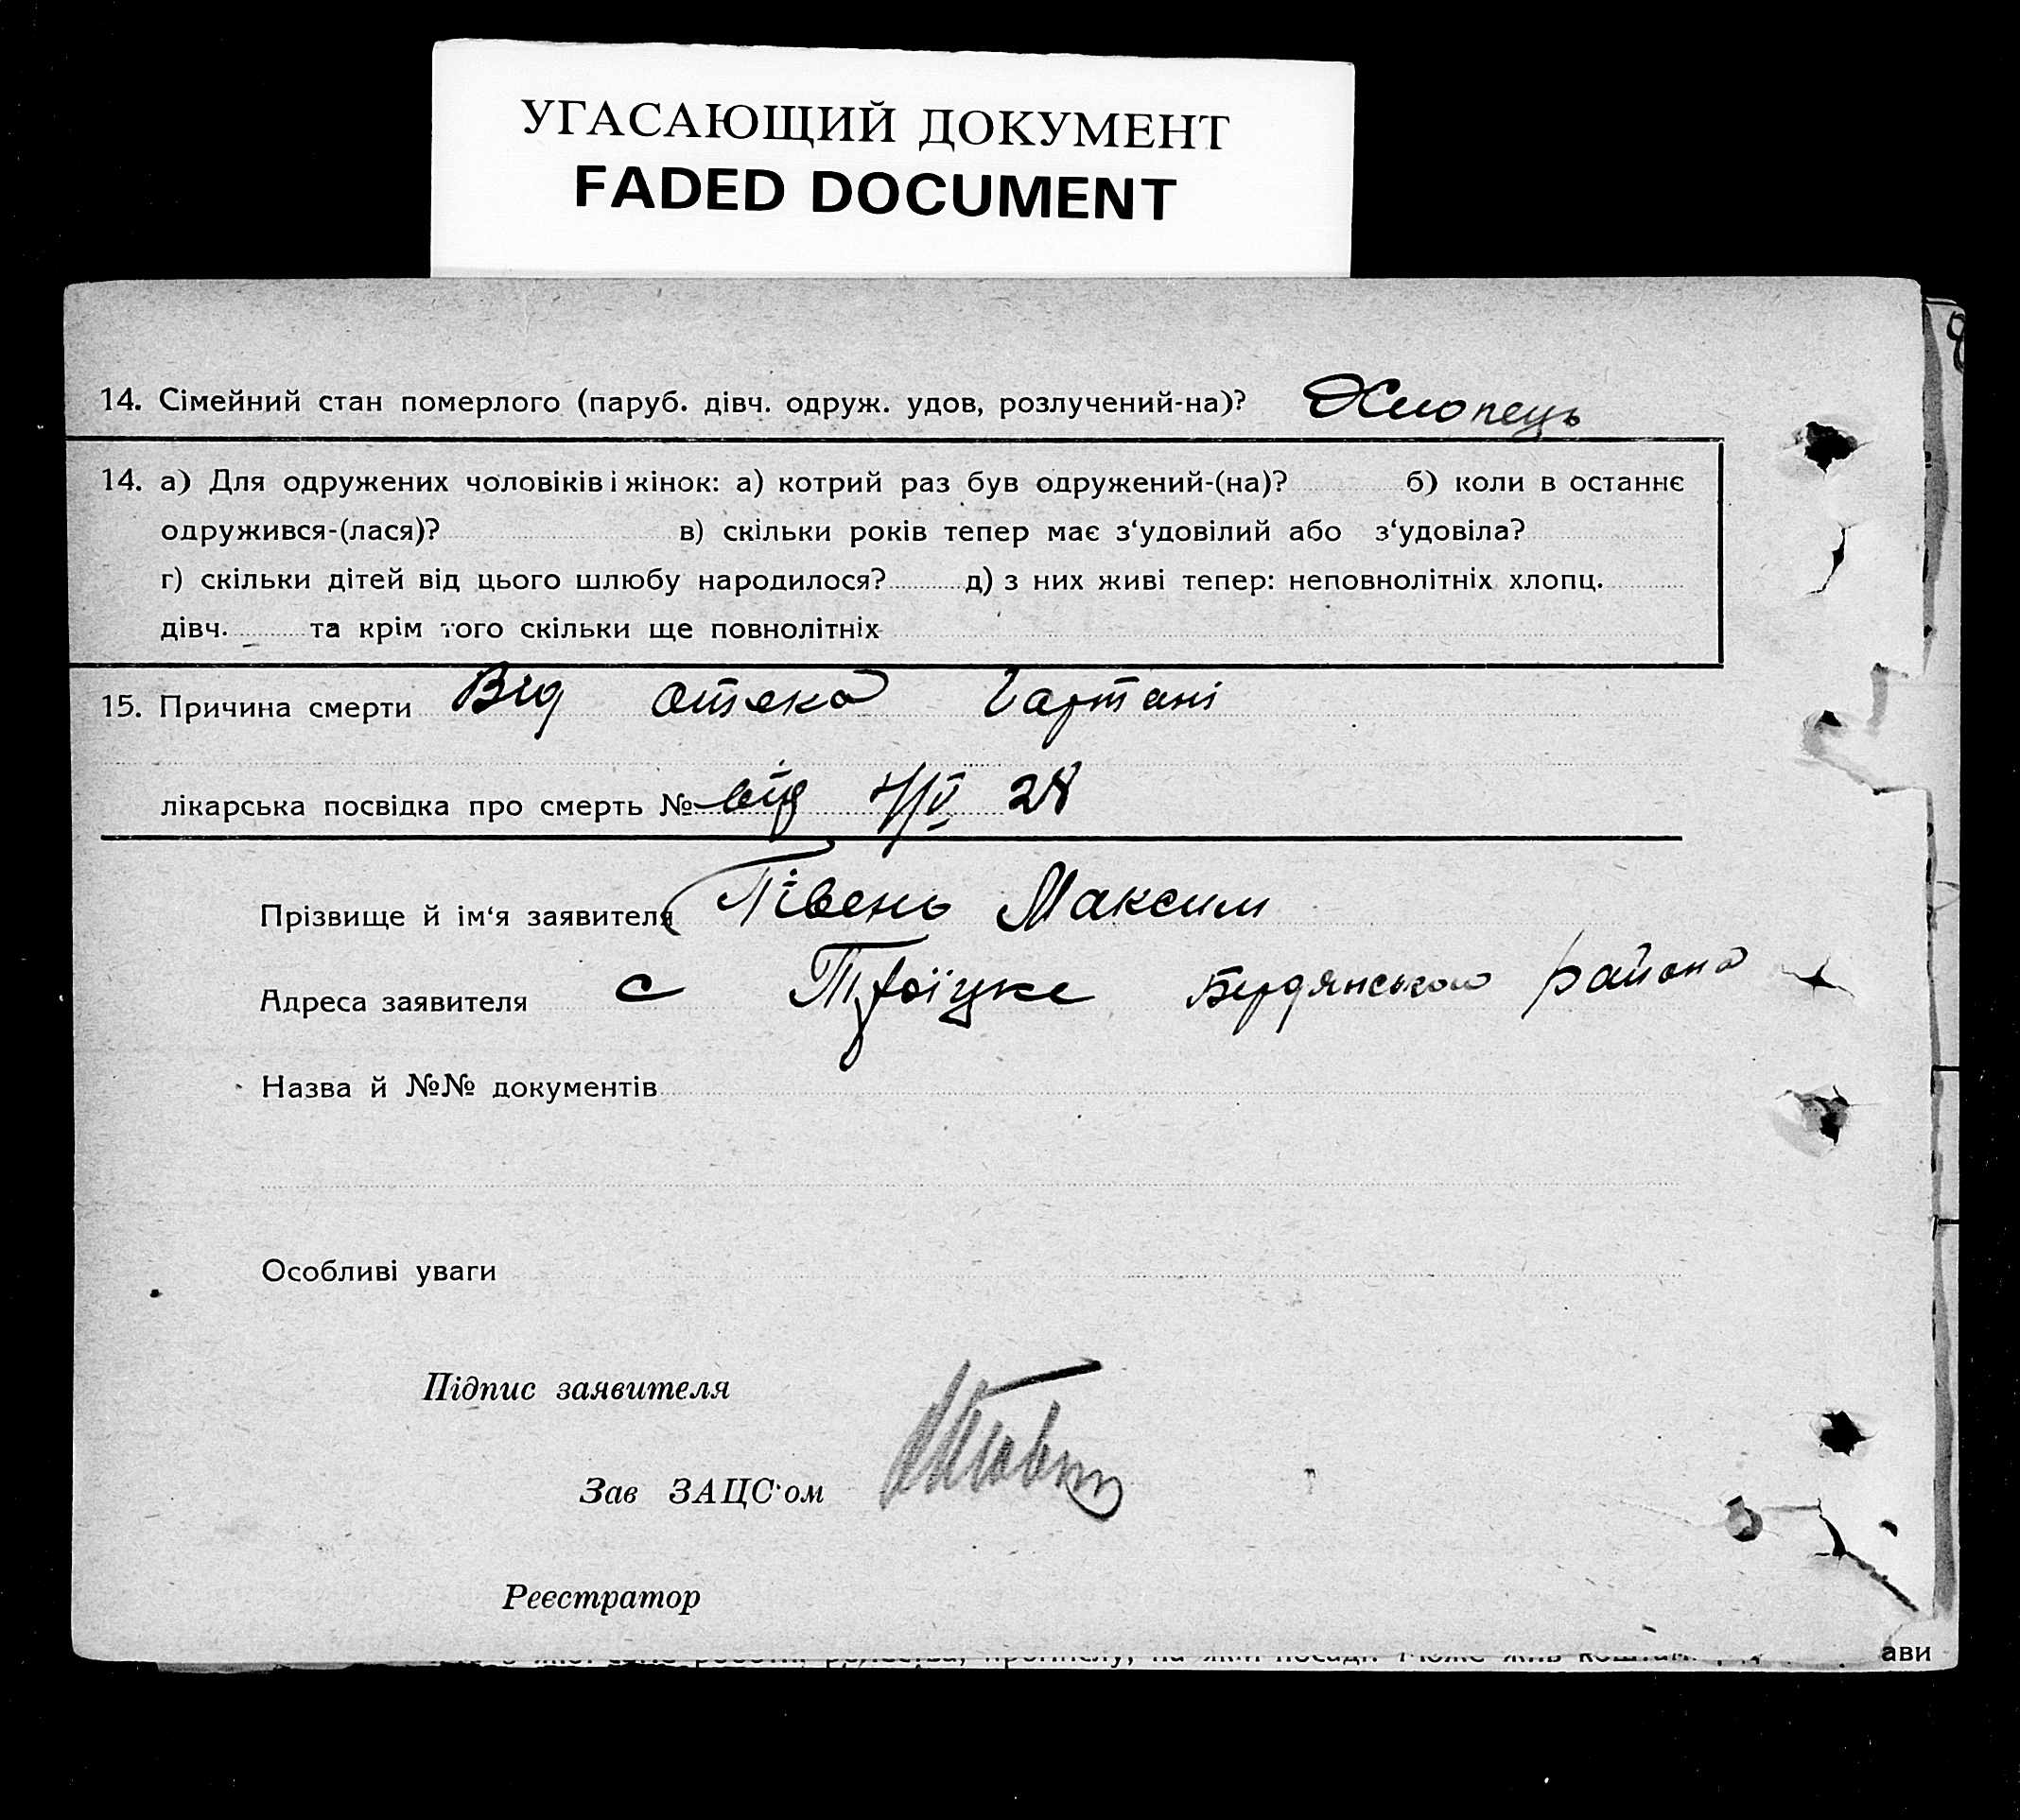 УГАСАЮЩИЙ ДОКУМЕНТ
FADED DOCUMENT
14. Сімейний стан померлого (паруб. дівч. одруж. удов, розлучений-на)? Хлопець
14. а) Для одружених чоловіків і жінок: а) котрий раз був одружений-(на)? б) коли в останнє
одружився-(лася)? в) скільки років тепер має з‘удовілий або з‘удовіла?
г) скільки дітей від цього шлюбу народилося? д) з них живі тепер: неповнолітніх хлопц.
дівч. та крім того скільки ще повнолітніх
15. Причина смерти Від отека гартані
лікарська посвідка про смерть № від 28
Прізвище й ім‘я заявителя Півень Максим
Адреса заявителя с Троїцке Бердянського района
Назва й №№ документів
Особливі уваги
Підпис заявителя
Зав ЗАЦС‘ом
Реєстратор
ави